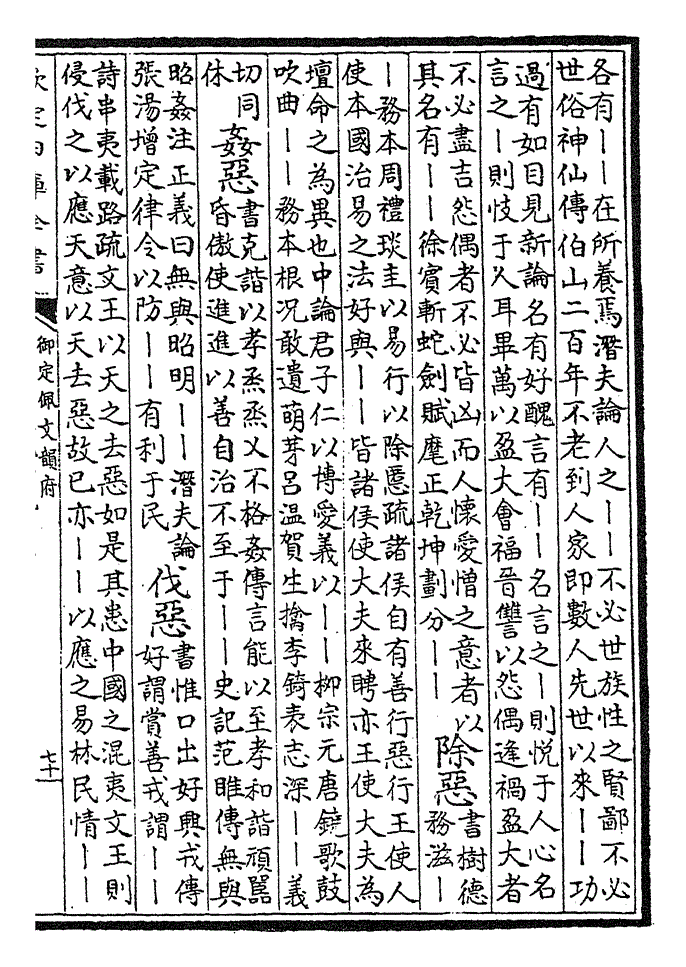 各有——在所養焉潛夫論人之——不必世族性之賢鄙不必
世俗神仙傳伯山二百年不老到人家即數人先世以來——功
過有如目見新論名有好醜言有——名言之—則悅于人心名
言之—則忮于人耳畢萬以盈大會福晉讐以怨偶逢禍盈大者
不必盡吉怨偶者不必皆凶而人懷愛憎之意者以
其名有——徐賓斬蛇劍賦麾正乾坤劃分——
除惡
書樹德
務滋——
—務本周禮琰圭以易行以除慝疏諸侯自有善行惡行王使人
使本國治易之法好與——皆諸侯使大夫來聘亦王使大夫為
壇命之為異也中論君子仁以博愛義以——柳宗元唐鐃歌鼓
吹曲——務本根况敢遺萌芽呂温賀生擒李錡表志深——義
切同
休
姦惡
書克諧以孝烝烝乂不格姦傳言能以至孝和諧頑嚚
昏傲使進進以善自治不至于——史記范雎傳無與
昭姦注正義曰無與昭明——潛夫論
張湯增定律令以防——有利于民
伐惡
書惟口出好興戎傳
好謂賞善戎謂——
詩串夷載路疏文王以天之去惡如是其患中國之混夷文王則
侵伐之以應天意以天去惡故已亦——以應之易林民情——
欽定四庫全書
御定佩文韻府
七十一